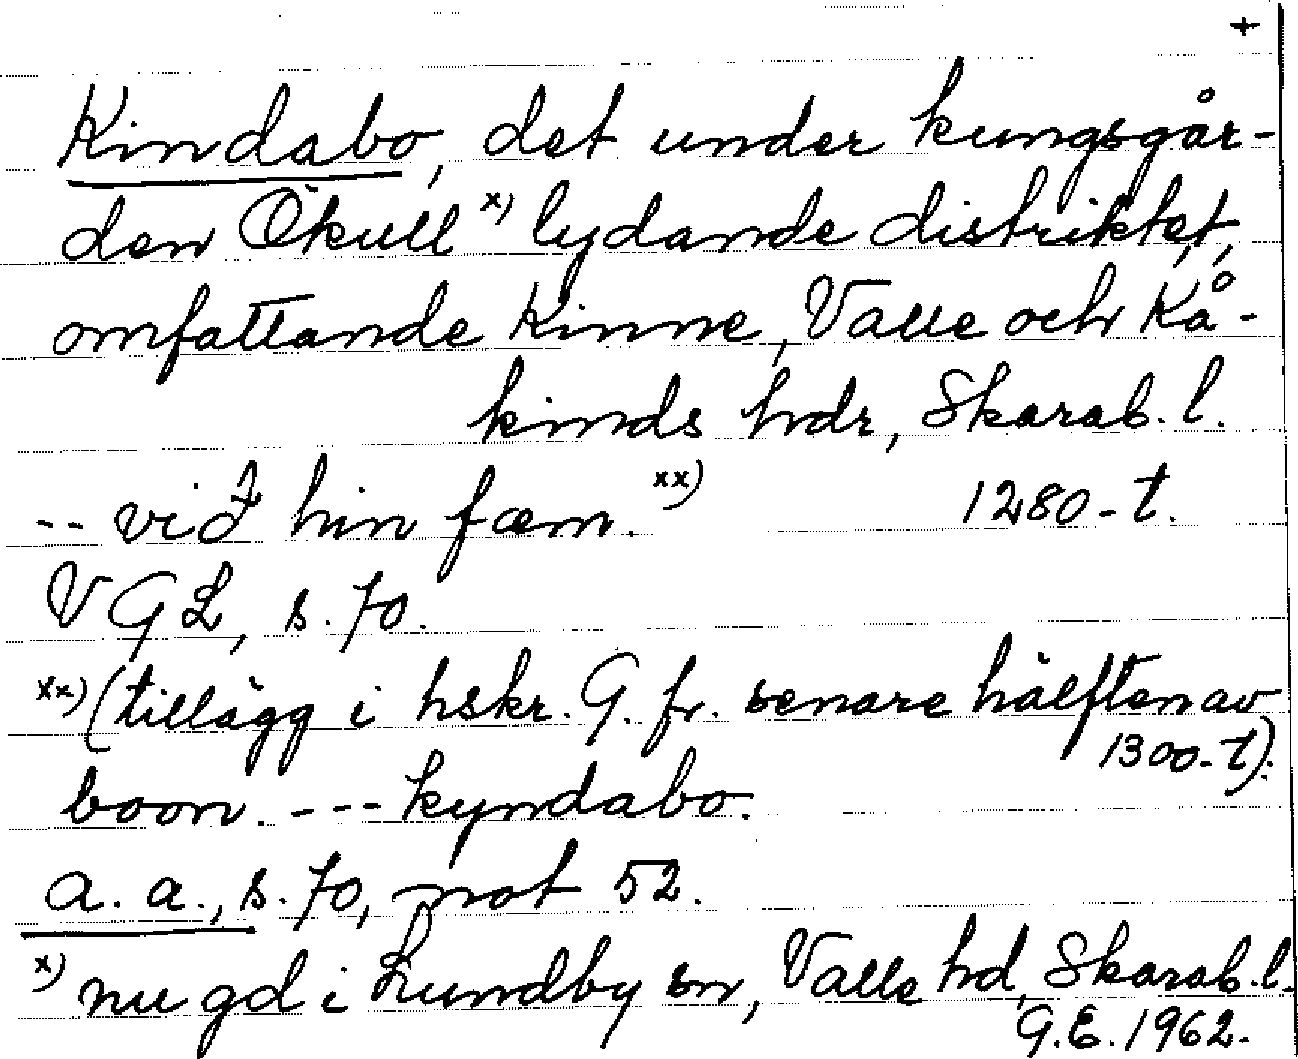 +
Kindabo, det under kungsgår-
den Ökull x) lydande distriktet,
omfattande Kinne, Valle och Kå-
kinds hdr, Skarab. l.
-- við hin fæm. xx) 1280-t.
VGL, s. 70.
xx) (tillägg i hskr. G. fr. senare hälften av
1300-t).
boon. --- kyndabo.
a. a., s. 70, not 52.
x) nu gd i Lundby sn, Valle hd, Skarab. l.
G.E. 1962.